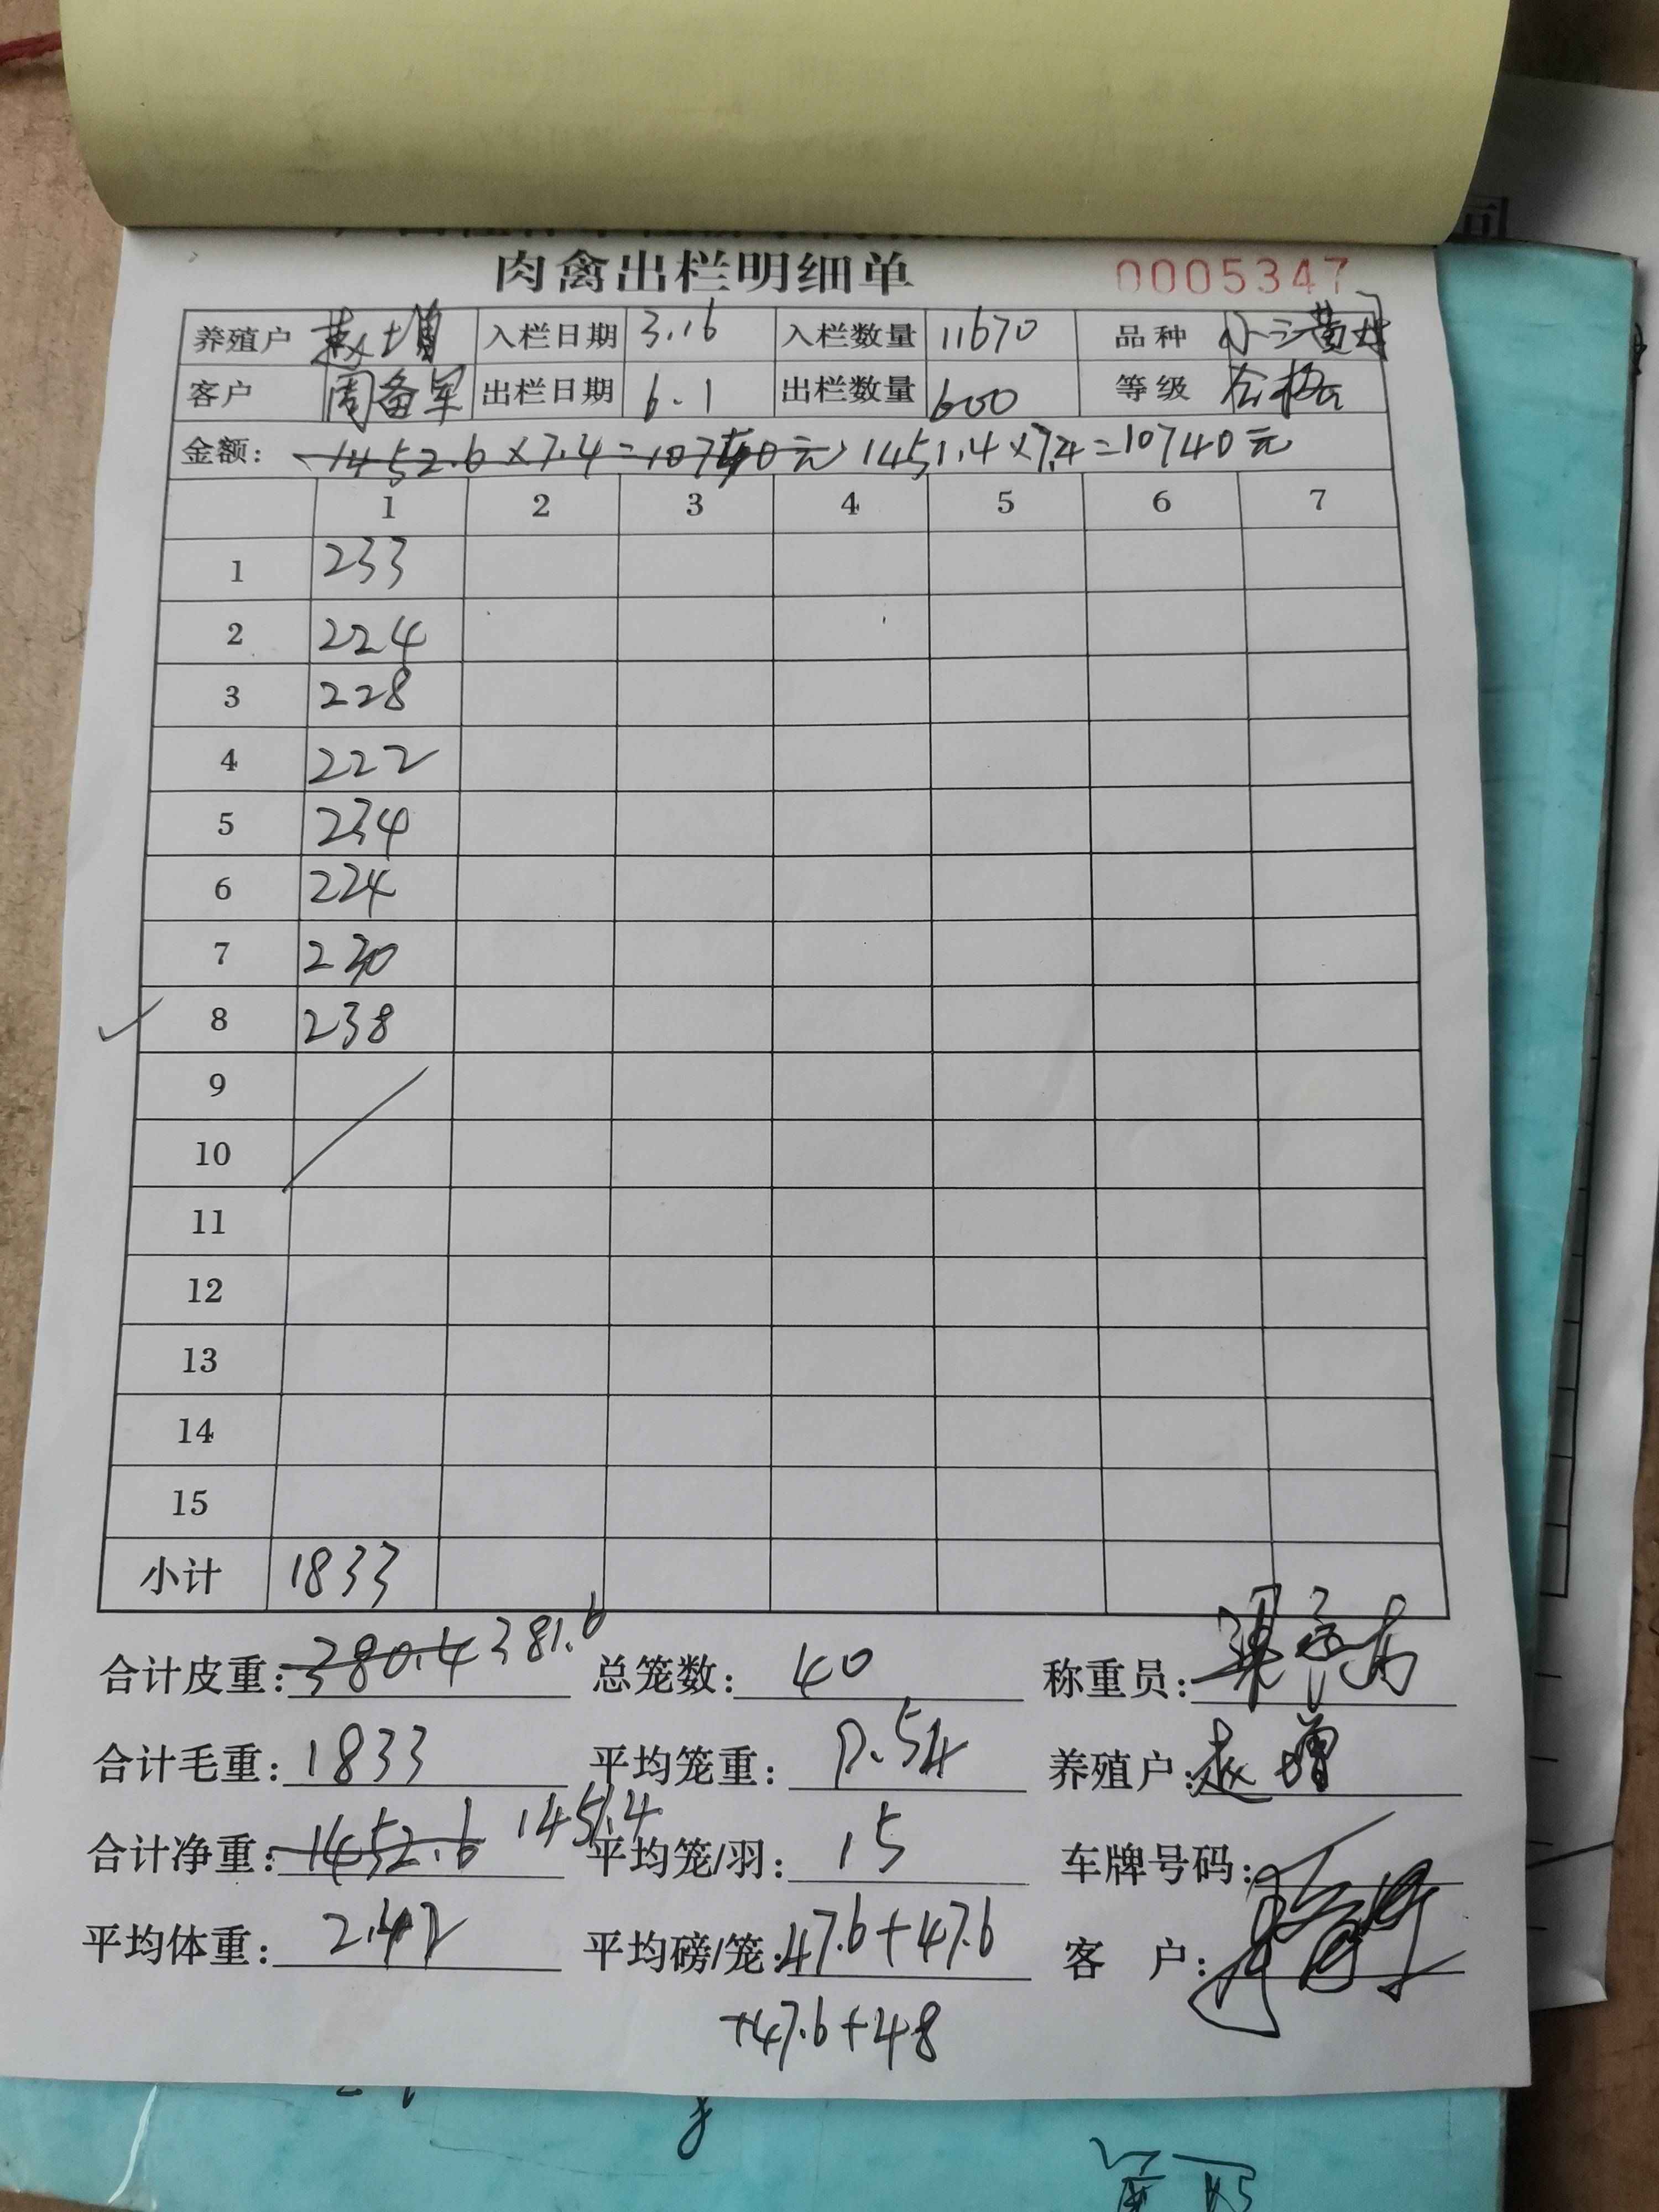 肉禽出栏明细单 0005347
养殖户 赵增 入栏日期 3.16 入栏数量 11670 品种 小三黄母
客户 周备军 出栏日期 6.1 出栏数量 600 等级 合格
金额: 1452.6×7.4=10740元 1451.4×7.4=10740元
1 2 3 4 5 6 7
1 233
2 224
3 228
4 222
5 234
6 224
7 230
8 238
9
10
11
12
13
14
15
小计 1833
合计皮重: 380.4 381.6 总笼数: 40 称重员:
合计毛重: 1833 平均笼重: 9.54 养殖户: 赵增
合计净重: 1452.6 1451.4 平均笼/羽: 15 车牌号码:
平均体重: 2.42 平均磅/笼: 47.6+47.6 客 户:
+47.6+48